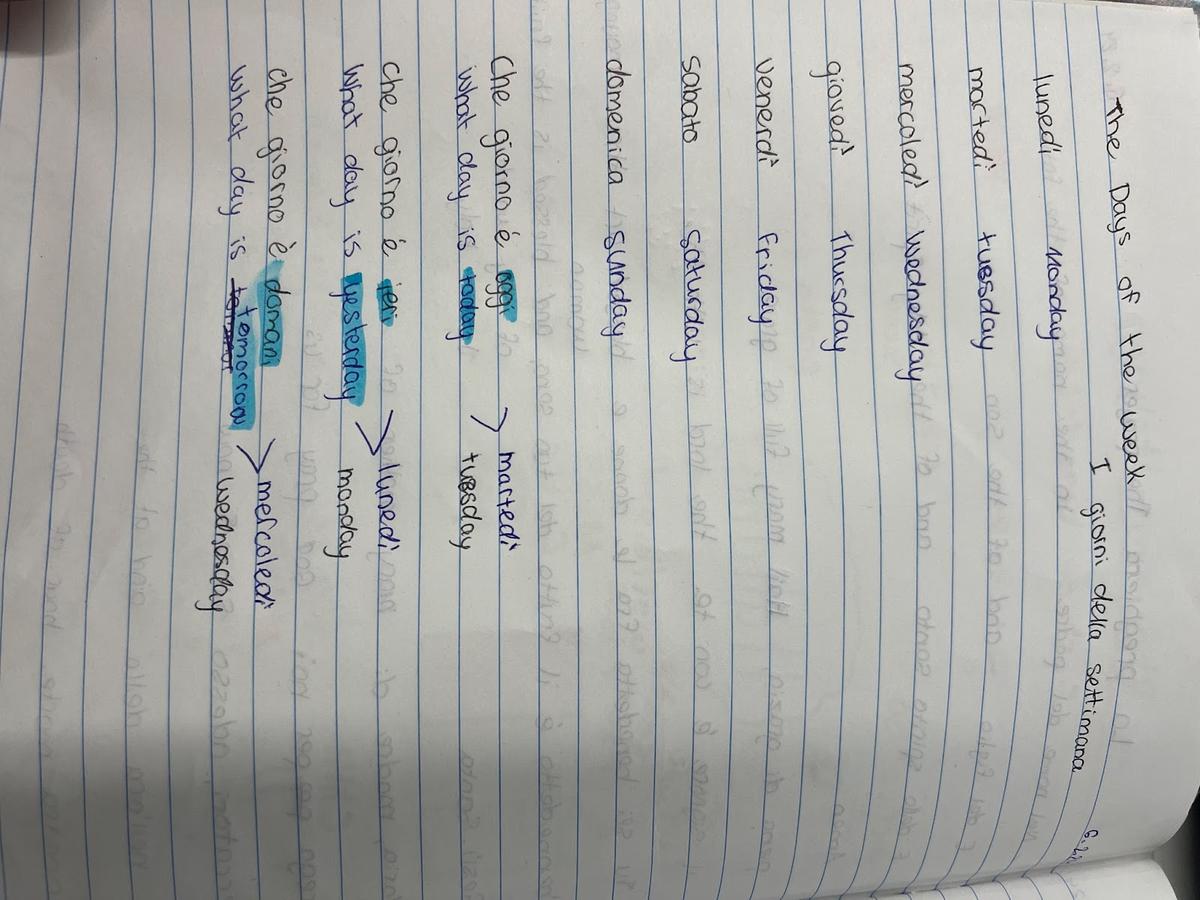 The Days of the week
I giorni della settimana
lunedì Monday
martedì tuesday
mercoledì Wednesday
giovedì Thursday
venerdì Friday
sabato Saturday
domenica Sunday
Che giorno è oggi > martedì
what day is today tuesday
che giorno è ieri > lunedì
What day is yesterday monday
che giorno è domani > mercoledì
what day is temorrow wednesday